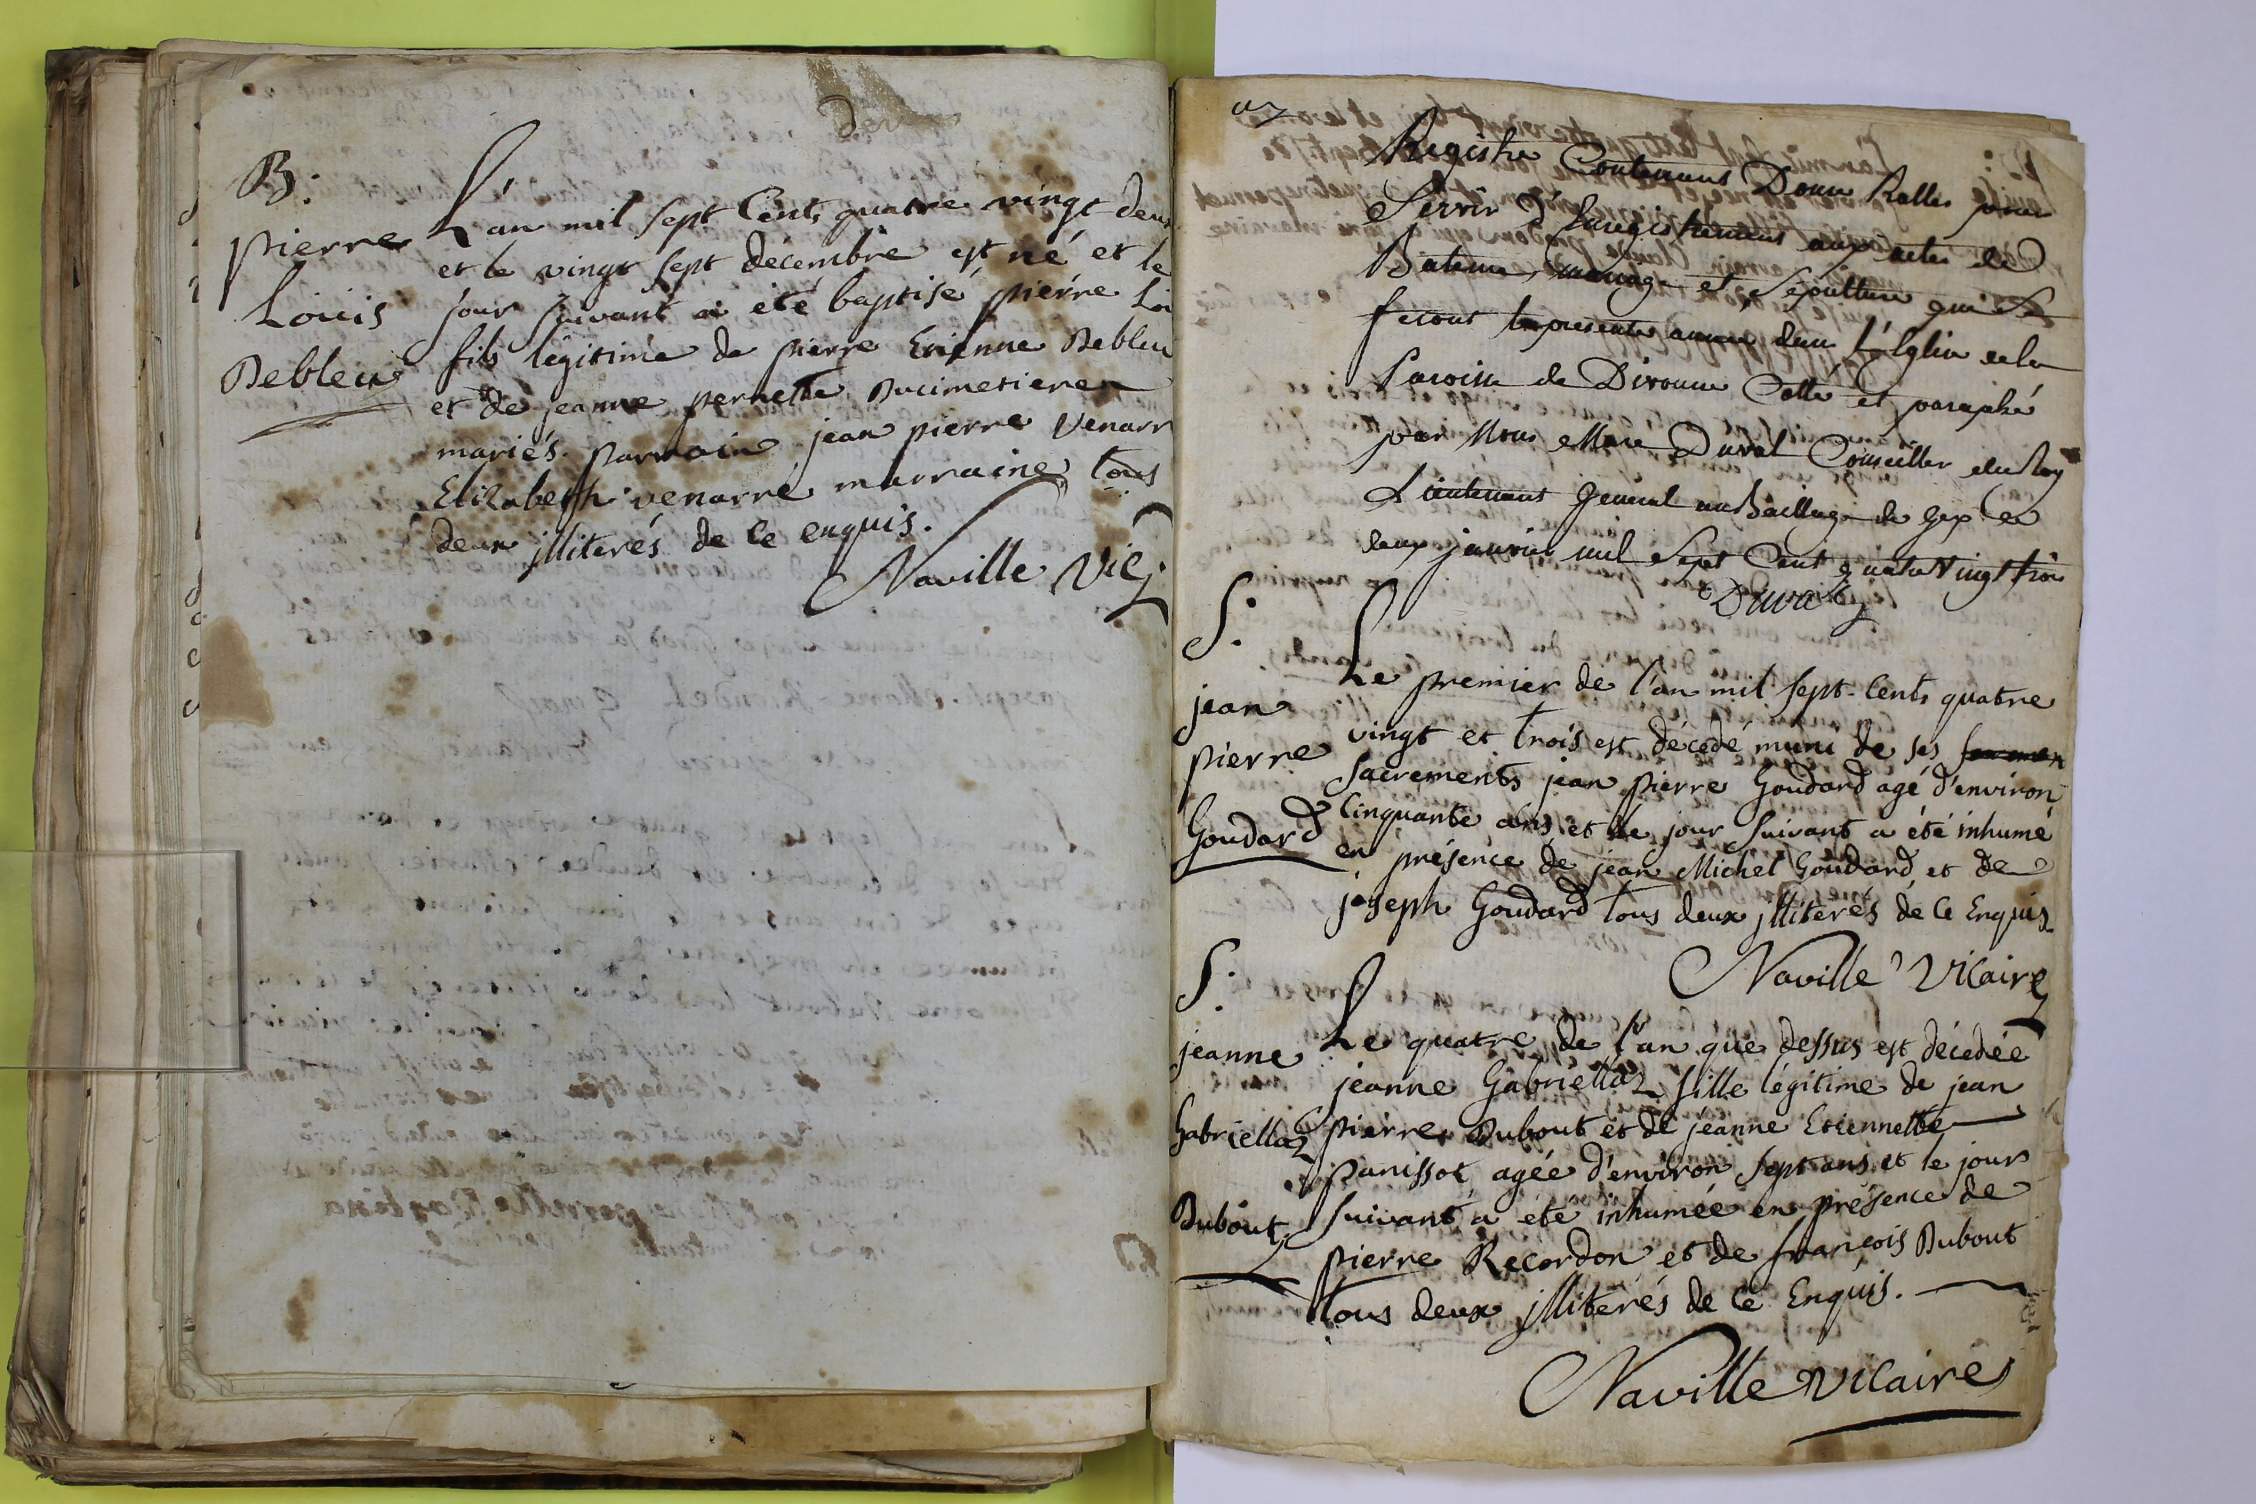 B.
pierre
Louis
Debleu
L'an mil sept Cents quatre vingt deux
et le vingt sept décembre est né et le
jour suivant a été baptisé pierre Loui
fils légitime de pierre Etienne Debleu
et de jeanne pernette Ducimetiere
mariés. parrain jean pierre Venarr
Elizabeth venarre marraine tous
deux illiterés de ce enquis.
Naville Vic.
Registre Contenant Douze Rolles pour
Servir d'Enregistrement aux actes de
Bateme, mariage et Sepulture qui Se
feront la presente année dans l'Eglise de la
Paroisse de Divonne Cotté et paraphé
par Nous Marc Duval Conseiller du Roy
Lieutenant General au Baillage de Gex Ce
deux janvier mil Sept Cent quatre Vingt trois
Duval
S.
jean
pierre
Goudard
Le premier de l'an mil sept-Cents quatre
vingt et trois est décedé muni de ses
Sacrements jean pierre Goudard agé d'environ
Cinquante ans et le jour suivant a été inhumé
en présence de jean Michel Goudard et de
joseph Goudard tous deux illiterés de ce Enquis.
Naville Vicaire
S.
jeanne
Gabriellaz
Dubout
Le quatre de l'an que dessus est décedée
jeanne Gabriellaz fille légitime de jean
pierre Dubout et de jeanne Etiennette
panissot agée d'environ sept ans et le jour
suivant a été inhumée en présence de
pierre Recordon et de françois Dubout
tous deux illiterés de ce Enquis.
Naville vicaire